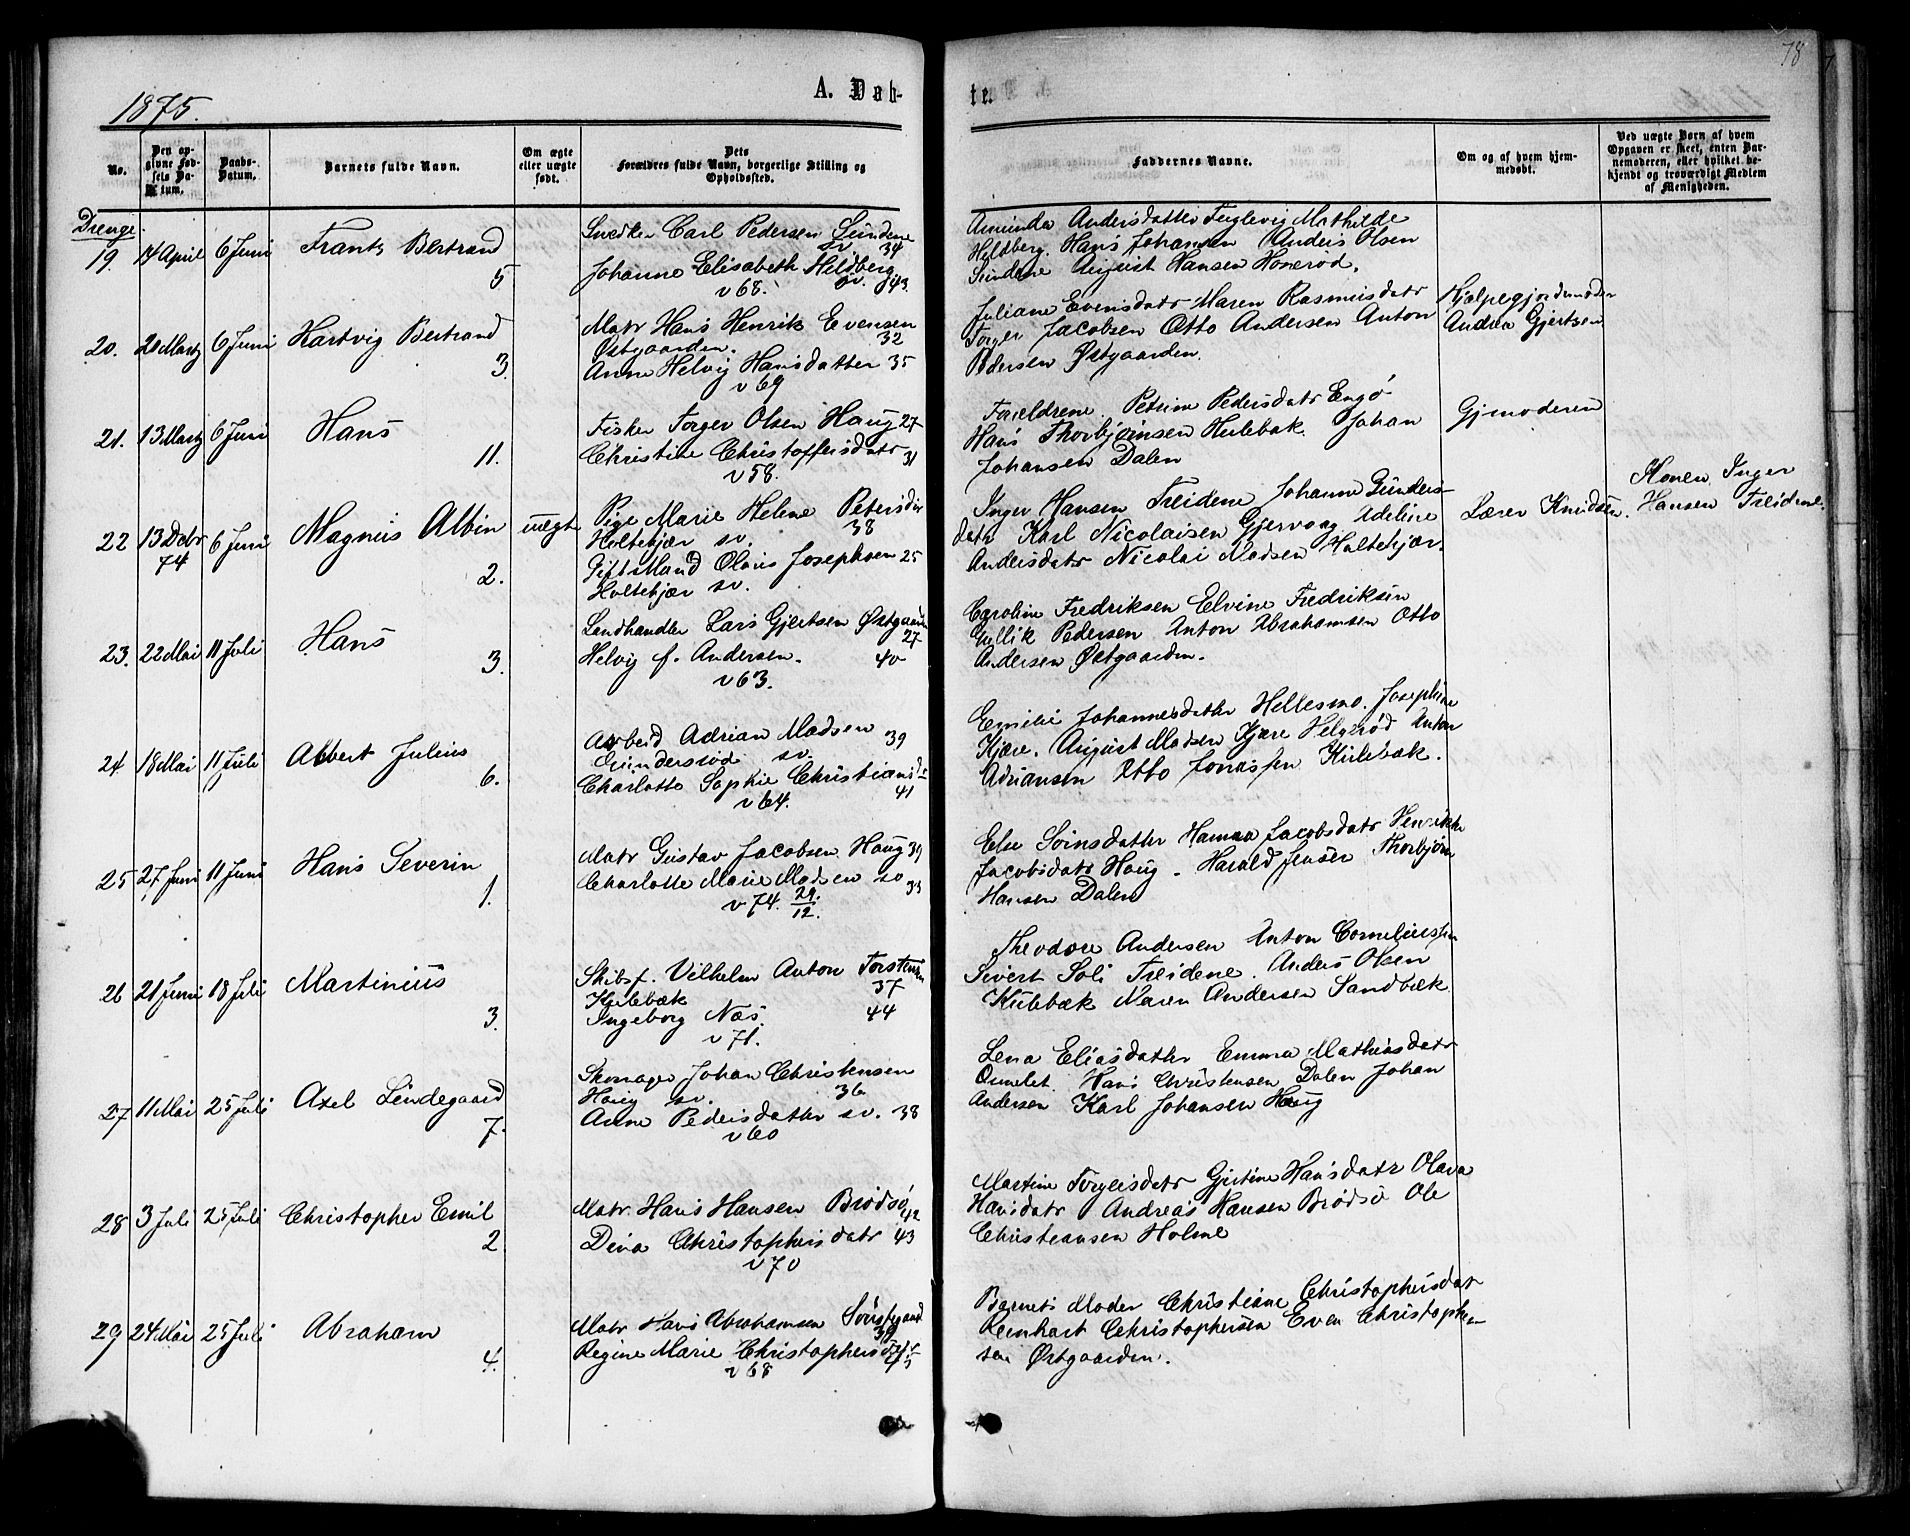 78
1875.
A. Døb-
te.
No.
Den op-
givne Fød-
sels Da-
tum.
Daabs-
Datum.
Barnets fulde Navn.
Om ægte
eller uægte
født.
Dets
Forældres fulde Navn, borgerlige Stilling og
Opholdssted.
Faddernes Navne.
Om og af hvem hjem-
medøbt.
Ved uægte Børn af hvem
Opgaven er skeet, enten Bar-
nemoderen, eller hvilket be-
kjendt og troværdigt Medlem
af Menigheden.
Drenge
19. 14 April 6 Juni Frants Bertrand 5
Snedker Carl Pedersen Sundene
sv 34
Johanne Elisabeth Hildberg
v 68. sv. 43.
Aminda Andersdatter Fuglevig Mathilde
Heldberg. Hans Johansen Anders Olsen
Sundene August Hansen Honerød.
20. 20 Marts 6 Juni Hartvig Bertrand 3.
Matr Hans Henrik Evensen
Østgaarden. 32
Anne Helvig Hansdatter 35
v 69
Juliane Evensdatr Maren Rasmusdatr
Torger Jacobsen Otto Andersen Anton
Pedersen Østgaarden.
Hjælpegjordemoder
Andrea Gjertsen
21. 13 Marts 6 Juni Hans 11.
Fisker Torger Olsen Haug 27
Christine Christoffersdatr 31
v 58.
Forældrene. Petrine Pedersdatr Engø
Hans Thorbjørnsen Kulebak. Johan
Johansen Dalen
Gjmoderen
22 13 Debr 74 6 Juni Magnus Albin 2. uægte
Pige Marie Helene Petersdtr
Holtekjær sv. 38
Gift Mand Olaus Josephsen 25
Holtekjær sv.
Inger Hansen Treidene Johanne Gunders-
datr Karl Nicolaisen Gjervaag Adeline
Andersdatr Nicolai Madsen Holtekjær.
Lærer Knudsen.
Konen Inger
Hansen Treidene.
23. 22 Mai 11 Juli Hans 3.
Landhandler Lars Gjertsen Østgaarden
27
Helvig f. Andersen. 40
v 63.
Caroline Fredriksen Elvine Fredriksen
Gullik Pedersen Anton Abrahamsen Otto
Andersen Østgaarden.
24 18 Mai 11 Juli Albert Julius 6.
Arbeid Adrian Madsen 39
Gundersrød sv.
Charlotte Sophie Christiansdtr
v 64. 41
Emilie Johannesdatter Hellesmo. Josephine
Kjære. August Madsen Kjære Helgerød Anton
Adriansen Otto Jonassen Kulebæk.
25 27 Juni 11 Juni Hans Severin 1.
Matr Gustav Jacobsen Haug 39
Charlotte Marie Madsen sv 33
v 74. 29/12.
Else Sørnsdatter Hanna Jacobsdatr Henrikke
Jacobsdatr Haug. Harald Jensen Thorbjørn
Hansen Dalen
26 21 Juni 18 Juli Martinius 3.
Skibsf. Vilhelm Anton Torstensen
Kulebæk 37
Ingeborg Næs. 44
v 71.
Theodore Andersen Anton Corneliussen
Sivert Soli Treidene. Anders Olsen
Kulebæk Maren Andersen Sandbæk
27 11 Mai 25 Juli Axel Lindegaard 7.
Skomager Johan Christensen
Haug sv. 36
Anne Pedersdatter sv. 38
v 60
Lena Eliasdatter Emma Mathiasdatr
Ormelet. Hans Christensen Dalen Johan
Andersen Karl Johansen Haug
28 3 Juli 25 Juli Christopher Emil 2
Matr. Hans Hansen Brødsø 42
Dina Christophersdatr 43
v 70
Martine Torgersdatr Gjertine Hansdatr Olava
Hansdatr Andreas Hansen Brødsø Ole
Christiansen Holme
29 24 Mai 25 Juli Abraham 4.
Matr Hans Abrahamsen Sørstgaard
39
Regine Marie Christophersdtr
v 68 45
Barnets Moder Christiane Christophersdatr
Reinhart Christophersen Even Christopher-
sen Østgaarden.